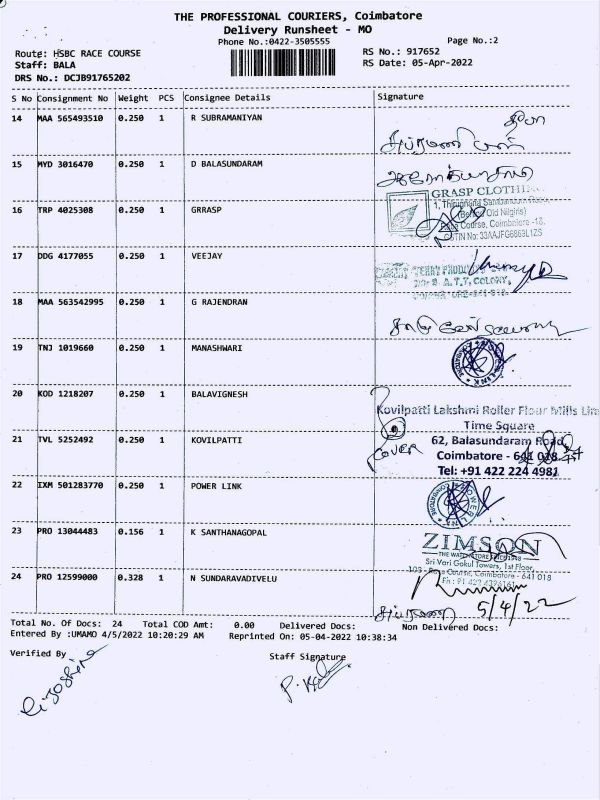 THE PROFESSIONAL COURIERS, Coimbatore
Delivery Runsheet - MO
Phone No.:0422-3505555
Page No.:2
Route: HSBC RACE COURSE
RS No.: 917652
Staff: BALA
RS Date: 05-Apr-2022
DRS No.: DCJB91765202
S No Consignment No Weight PCS Consignee Details Signature
14 MAA 565493510 0.250 1 R SUBRAMANIYAN
தீபா
15 MYD 3016470 0.250 1 D BALASUNDARAM
GRASP CLOTHI
16 TRP 4025308 0.250 1 GRRASP
(Behind Old Nilgiris)
Race Course, Coimbatore -18.
GSTIN No: 33AAJFG6869L1ZS
17 DDG 4177055 0.250 1 VEEJAY
A.T.T. COLONY,
18 MAA 563542995 0.250 1 G RAJENDRAN
19 TNJ 1019660 0.250 1 MANASHWARI
20 KOD 1218207 0.250 1 BALAVIGNESH
Kovilpatti Lakshmi Roller Flour Mills Lim
Time Square
21 TVL 5252492 0.250 1 KOVILPATTI
62, Balasundaram Road
cover
Coimbatore - 641 018
Tel: +91 422 224 4981
22 IXM 501283770 0.250 1 POWER LINK
POWER LINK
COIMBATORE
23 PRO 13044483 0.156 1 K SANTHANAGOPAL
ZIMSON
THE WATCH STORE SINCE 1948
Sri Vari Gokul Towers, 1st Floor,
Race Course, Coimbatore - 641 018
24 PRO 12599000 0.328 1 N SUNDARAVADIVELU
5/4/22
Total No. Of Docs: 24 Total COD Amt: 0.00 Delivered Docs: Non Delivered Docs:
Entered By :UMAMO 4/5/2022 10:20:29 AM Reprinted On: 05-04-2022 10:38:34
Verified By
Staff Signature